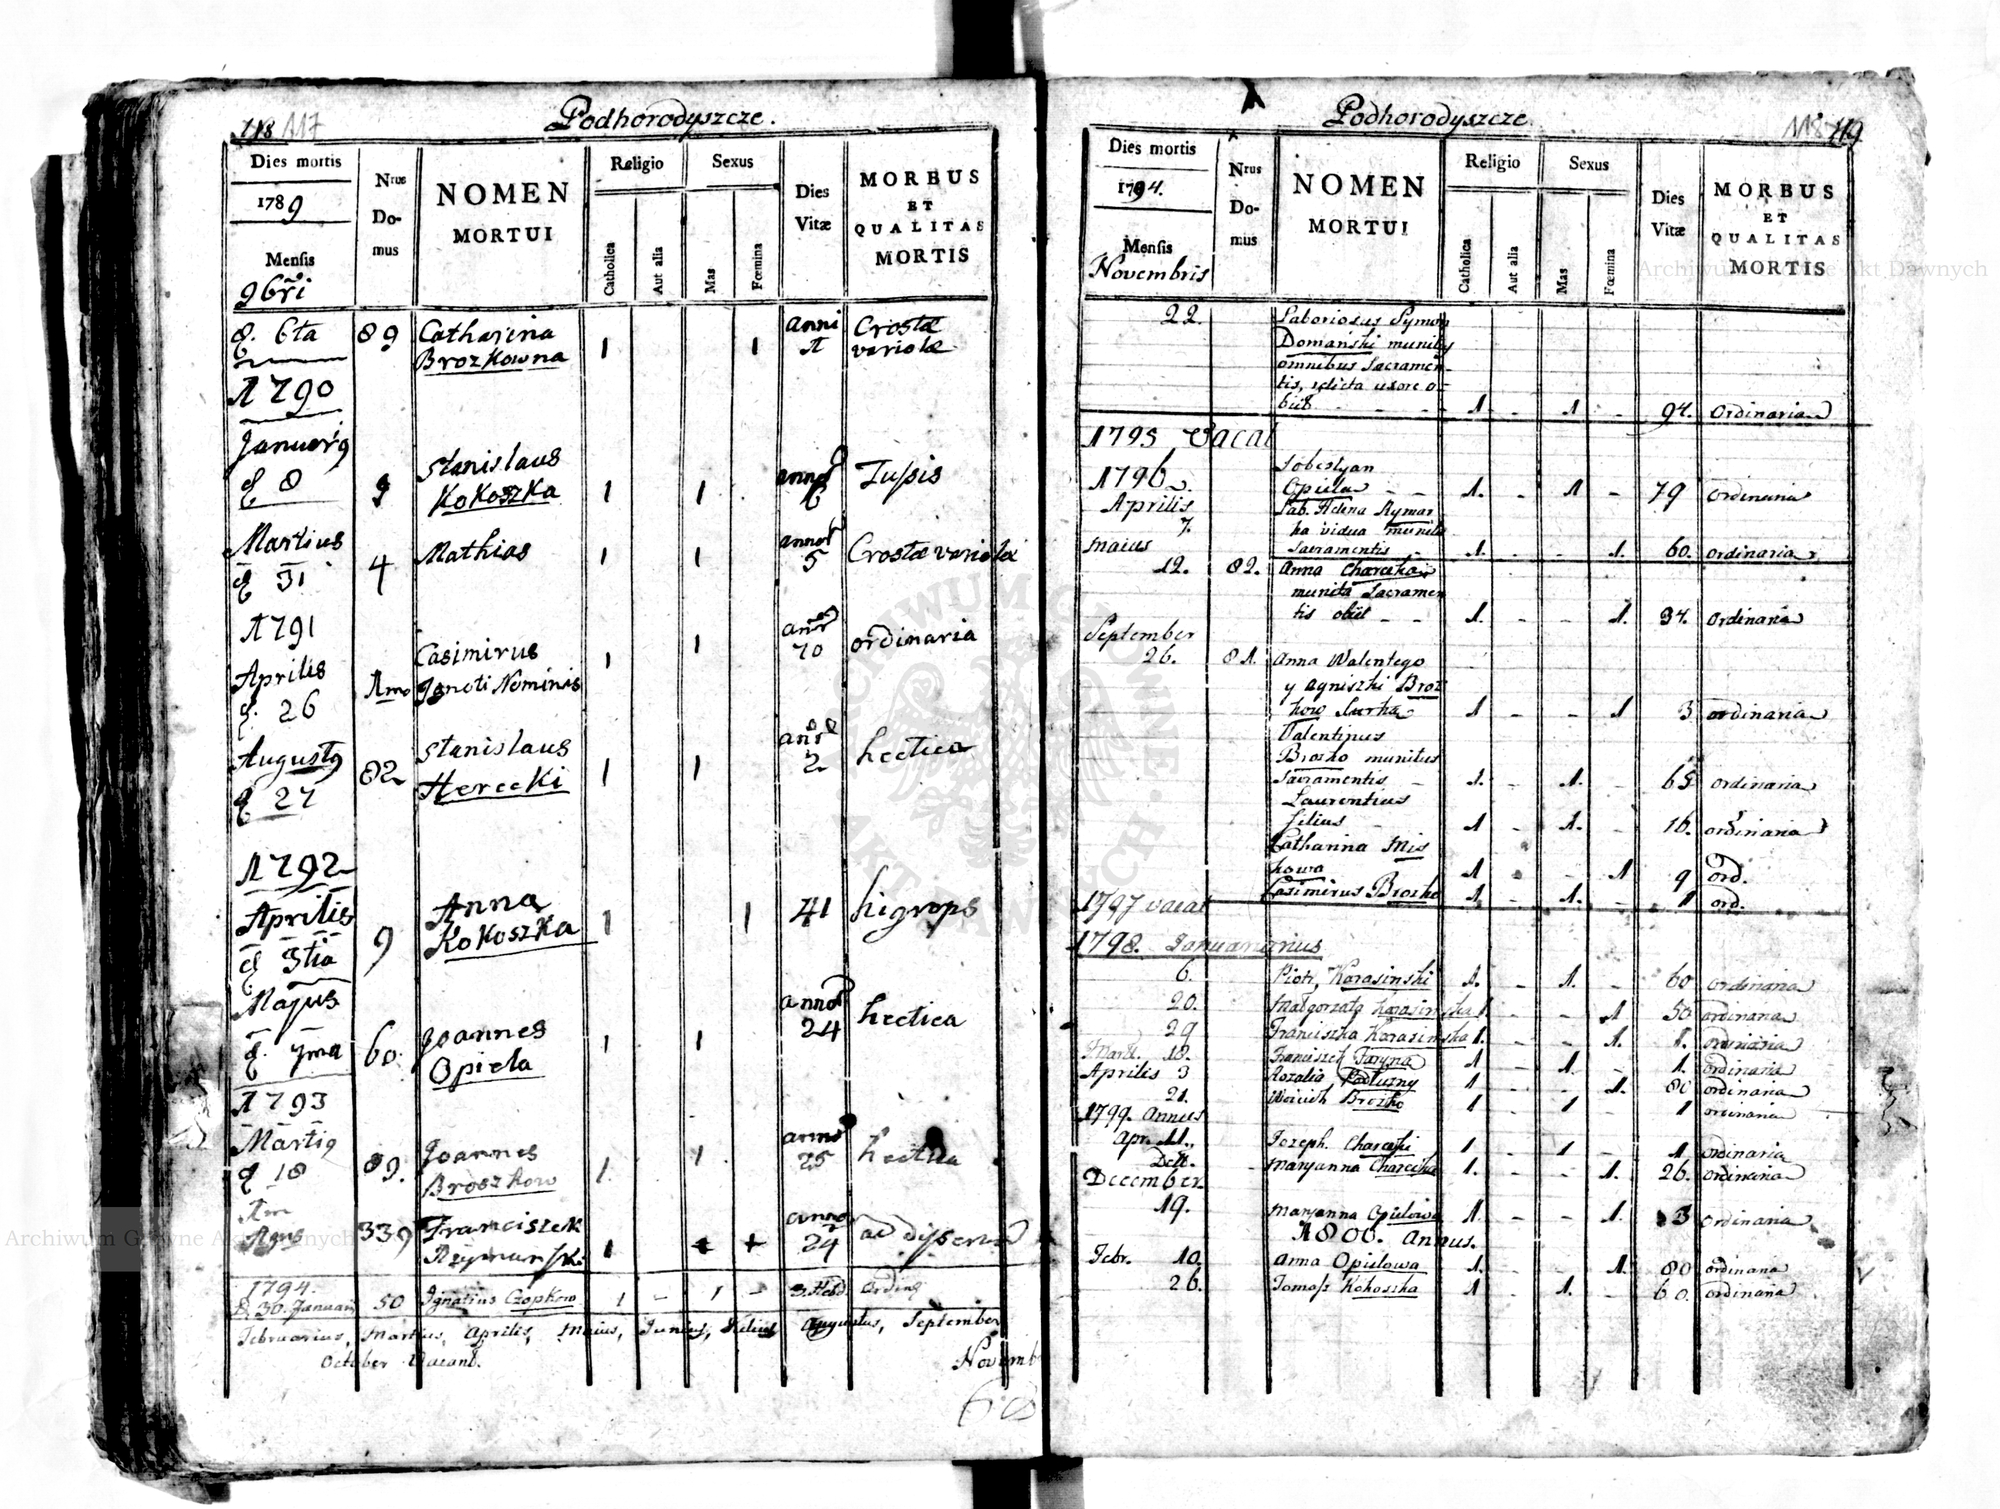 118 117
Podhorodyszcze.
Dies mortis
1789
Mensis
9bris
Nrus Domus
NOMEN MORTUI
Religio
Catholica
Aut alia
Sexus
Mas
Fœmina
Dies Vitæ
MORBUS ET QUALITAS MORTIS
6ta 89 Catharina anni Crostæ
Brozkowna 1 1 1 variolæ
1790
Januarij Stanislaus
8 9 Kokoszka 1 1 6 Tussis
Martius Mathias 1 1 annor Crostæ variolæ
31 4 5
1791
Casimirus 1 1 70 ordinaria
Aprilis 1mo Ignoti Nominis
26
Augusty Stanislaus hectica
27 82 Herecki 1 1 2
1792
Aprilis Anna
3tia 9 Kokoszka 1 1 41 higrops
Majus annor hectica
7ma 60. Joannes 1 1 24
Opiela
1793
Martij Joannes annor
18 89. Broszkow 1. 1 25 hectica
339 Franciszek 24
1794.
30. Januarij 50 Ignatius Czopko 1 - 1 -
Februarius, Martius, Aprilis, Maius, Junius, Julius, Augustus, September
October Vacant.
Novemb
68
Podhorodyszcze
118 119
Dies mortis
1794.
Mensis
Novembris
Nrus Domus
NOMEN MORTUI
Religio
Catholica
Aut alia
Sexus
Mas
Fœmina
Dies Vitæ
MORBUS ET QUALITAS MORTIS
22. Laboriosus Symon
Domanski munitus
omnibus Sacramen-
tis, relicta uxore o-
biit - - - 1. - 1 - 94. ordinaria
1795 Vacat
1796 Sobestyan
Opiela - - 1. - 1 - 79 ordinaria
Aprilis Lab. Helena Rymar
7. ka vidua munita
Maius Sacramentis - 1. - - 1. 60. ordinaria
12. 82. Anna Charecka
munita Sacramen
tis obiit - - 1. - - 1. 34. ordinaria
September
26. 81. Anna Walentego
y Agniszki Broz
kow Curka 1 - - 1 3 ordinaria
Valentinus
Broszko munitus
Sacramentis - 1. - 1. - 65 ordinaria
Laurentius
filius - 1 - 1. - 16. ordinaria
Catharina Mis
kowa 1 - - 1 9 ord.
Casimirus Broszko 1 - 1. - 1 ord.
1797 vacat
1798. Januariarius
6. Piotr, Karasinski 1. - 1. - 60 ordinaria
20. Małgorzata Karasinska 1 - - 1 50 ordinaria
29 Franciszka Karasinska 1. - - 1. 1. ordinaria
18. Franciszek Faryna 1 - 1 - 1. ordinaria
Aprilis 3 Rozalia 1 - - 1. 80 ordinaria
21. Woicieh Brozko 1 - 1 - 1 ordinaria
1799. Annus
Apr. 11. Jozeph. Charecki 1 - 1 - 1 ordinaria
Maryanna Charecka 1. - - 1. 26. ordinaria
December
19. Maryanna Opielowa 1. - - 1. 3 ordinaria
1800. Annus.
Febr. 10. Anna Opielowa 1. - - 1. 80 ordinaria
26. Tomasz Kokoszka 1 - 1. - 60. ordinaria
Archiwum Główne Akt Dawnych